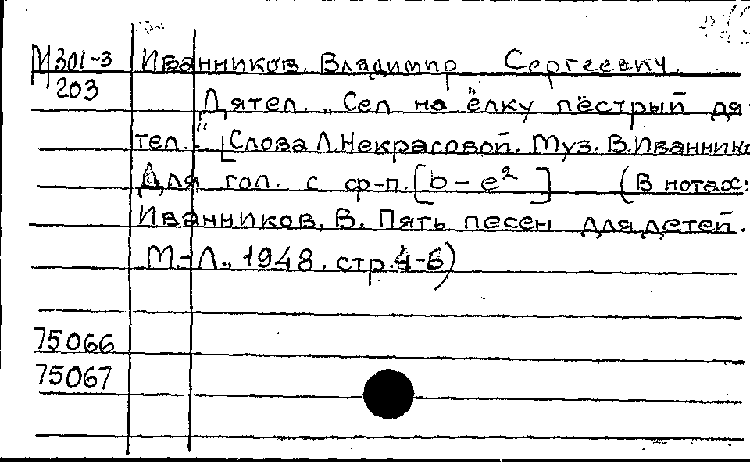 М301-3 Иванников Владимир Сергеевич.
203 Дятел. „Сел на ёлку пёстрый дя
тел." [Слова Л.Некрасовой. Муз. В.Иванник
Для гол. с ф-п. [b - e²] (В нотах:
Иванников, В. Пять песен для детей.
М.-Л., 1948. стр.4-6)
75066
75067